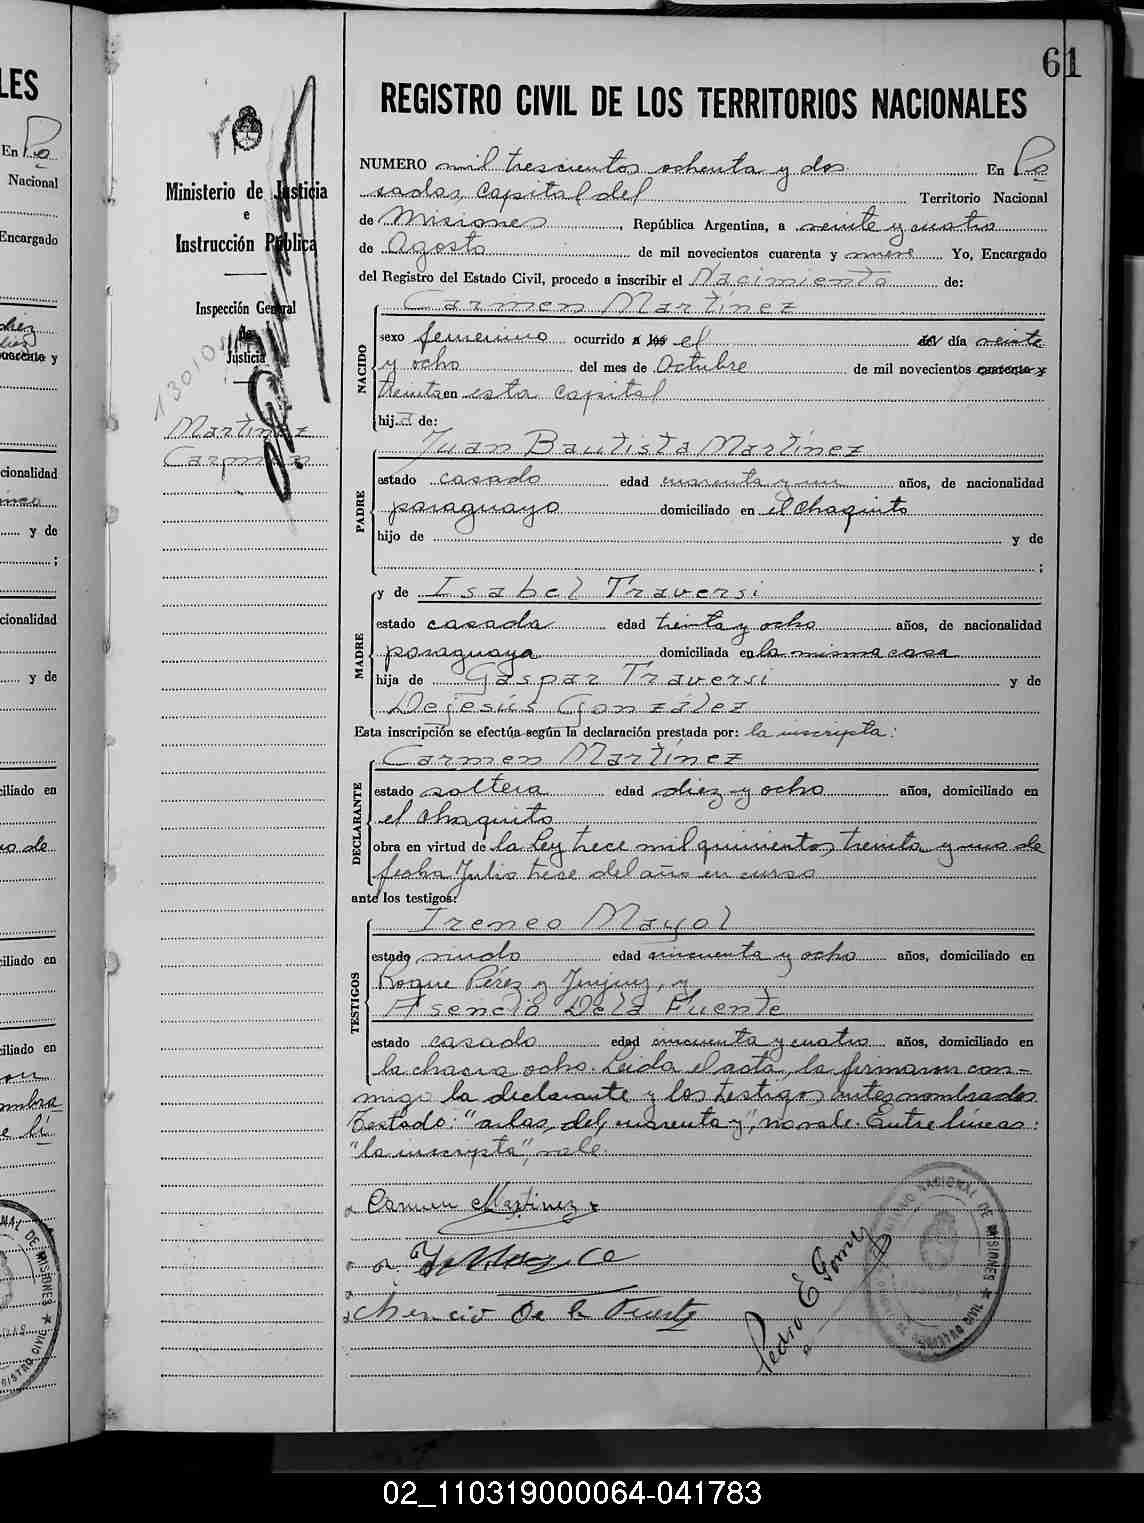 61
REGISTRO CIVIL DE LOS TERRITORIOS NACIONALES
Ministerio de Justicia
e
Instrucción Pública
Inspección General
de
Justicia
Martinez
Carmen
NUMERO mil trescientos ochenta y dos En Po
sadas, capital del Territorio Nacional
de Misiones, República Argentina, a veinte y cuatro
de Agosto de mil novecientos cuarenta y nueve Yo, Encargado
del Registro del Estado Civil, procedo a inscribir el Nacimiento de:
Carmen Martínez
NACIDO
sexo femenino ocurrido a las el del día veinte
y ocho del mes de Octubre de mil novecientos cuarenta y
treinta en esta capital
hija de:
Juan Bautista Martínez
PADRE
estado casado edad cuarenta y un años, de nacionalidad
paraguayo domiciliado en el Chaquito
hijo de y de
;
y de Isabel Traversi
MADRE
estado casada edad treinta y ocho años, de nacionalidad
paraguaya domiciliada en la misma casa
hija de Gaspar Traversi y de
Dejesús González
Esta inscripción se efectúa según la declaración prestada por: la inscripta:
Carmen Martínez
DECLARANTE
estado soltera edad diez y ocho años, domiciliado en
el Chaquito
obra en virtud de la Ley trece mil quinientos treinta y uno de
fecha Julio trece del año en curso
ante los testigos:
Ireneo Mayol
TESTIGOS
estado viudo edad cincuenta y ocho años, domiciliado en
Roque Pérez y Jujuy, y
Asencio Dela Fuente
estado casado edad cincuenta y cuatro años, domiciliado en
la chacra ocho. Leída el acta, la firmaron con-
migo la declarante y los testigos antes nombrados
Testado: "a las, del, cuarenta y", no vale. Entre líneas:
"la inscripta", vale.
Carmen Martinez
De la Fuente
Pedro E Gomez
02_110319000064-041783